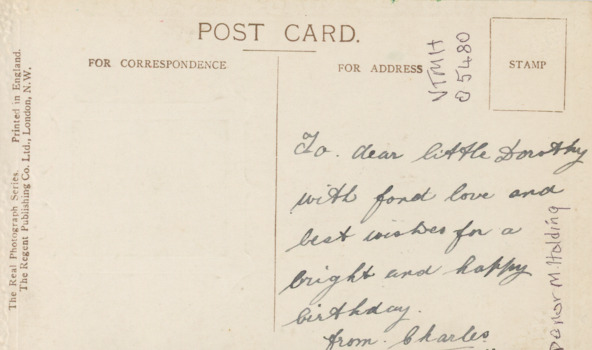 POST CARD.
FOR CORRESPONDENCE
FOR ADDRESS
STAMP
VTMH
05480
The Real Photograph Series. Printed in England.
The Regent Publishing Co. Ltd., London, N.W.
To. dear little Dorothy
with fond love and
best wishes for a
bright and happy
birthday.
from. Charles
M. Holding